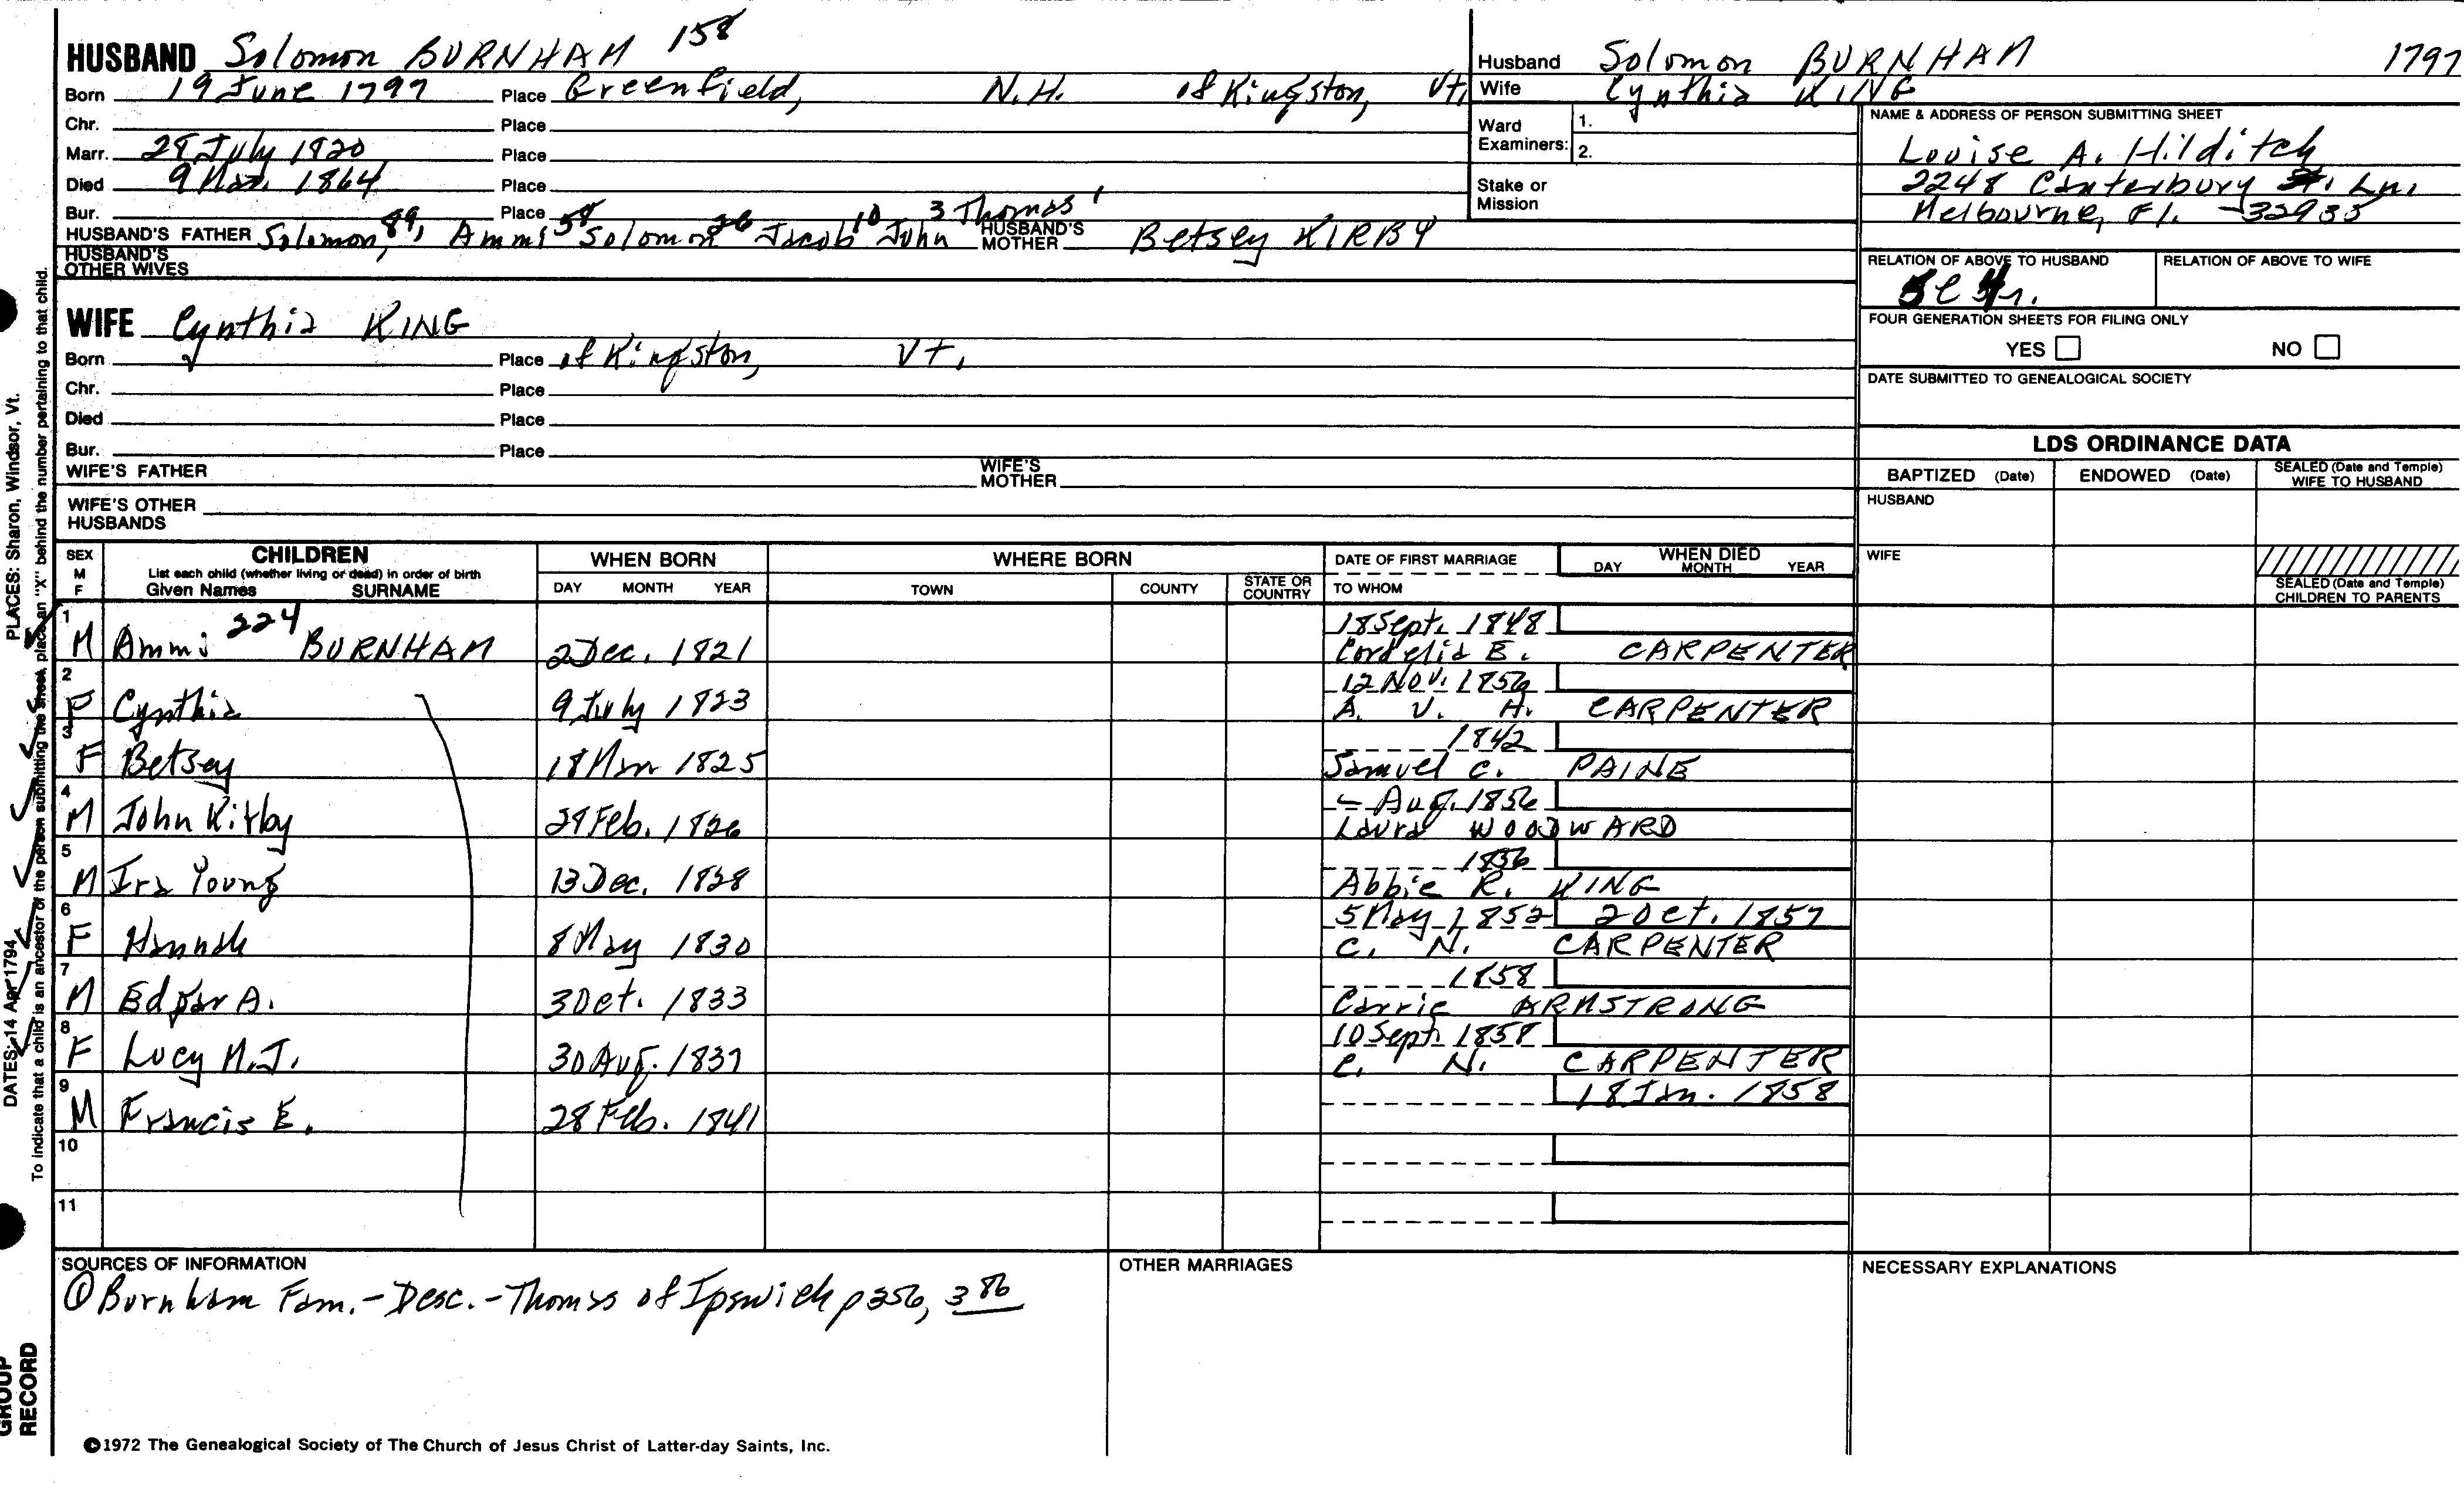 HUSBAND Solomon BURNHAM 158
Born 19 June 1797 Place Greenfield, N.H. of Kingston, Vt.
Chr. Place
Marr. 28 July 1820 Place
Died 9 Mar. 1864 Place
Bur. Place
HUSBAND'S FATHER Solomon, 89, Ammi 58 Solomon 26 Jacob 10 John 3 Thomas 1 HUSBAND'S MOTHER Betsey KIRBY
HUSBAND'S OTHER WIVES
WIFE Cynthia KING
Born Place of Kingston, Vt.
Chr. Place
Died Place
Bur. Place
WIFE'S FATHER WIFE'S MOTHER
WIFE'S OTHER HUSBANDS
Husband Solomon BURNHAM 1797
Wife Cynthia KING
Ward Examiners: 1.
2.
Stake or Mission
NAME & ADDRESS OF PERSON SUBMITTING SHEET
Louise A. Hilditch
2248 Canterbury Ln.
Melbourne, Fl. 32935
RELATION OF ABOVE TO HUSBAND RELATION OF ABOVE TO WIFE
FOUR GENERATION SHEETS FOR FILING ONLY
YES NO
DATE SUBMITTED TO GENEALOGICAL SOCIETY
LDS ORDINANCE DATA
BAPTIZED (Date) ENDOWED (Date) SEALED (Date and Temple) WIFE TO HUSBAND
HUSBAND
WIFE
SEALED (Date and Temple) CHILDREN TO PARENTS
SEX M F CHILDREN List each child (whether living or dead) in order of birth Given Names SURNAME
WHEN BORN DAY MONTH YEAR
WHERE BORN TOWN COUNTY STATE OR COUNTRY
DATE OF FIRST MARRIAGE TO WHOM
WHEN DIED DAY MONTH YEAR
1 M Ammi 224 BURNHAM 2 Dec. 1821 18 Sept. 1848
Cordelia E. CARPENTER
2 F Cynthia 9 July 1823 12 Nov. 1856
A. V. H. CARPENTER
3 F Betsey 18 Mar 1825 1842
Samuel C. PAINE
4 M John Kirby 28 Feb. 1826 - Aug. 1856
Laura WOODWARD
5 M Ira Young 13 Dec. 1828 1856
Abbie R. KING
6 F Hannah 8 May 1830 5 May 1852 2 Oct. 1857
C. N. CARPENTER
7 M Edgar A. 3 Oct. 1833 1858
Carrie ARMSTRONG
8 F Lucy M.J. 30 Aug. 1837 10 Sept. 1858
C. N. CARPENTER
9 M Francis E. 28 Feb. 1841 18 Jan. 1858
10
11
SOURCES OF INFORMATION
① Burnham Fam.-Desc.-Thomas of Ipswich p 356, 386
OTHER MARRIAGES
NECESSARY EXPLANATIONS
©1972 The Genealogical Society of The Church of Jesus Christ of Latter-day Saints, Inc.
PLACES: Sharon, Windsor, Vt.
DATES: 14 Apr 1794
To indicate that a child is an ancestor of the person submitting the sheet, place an "X" behind the number pertaining to that child.
GROUP
RECORD